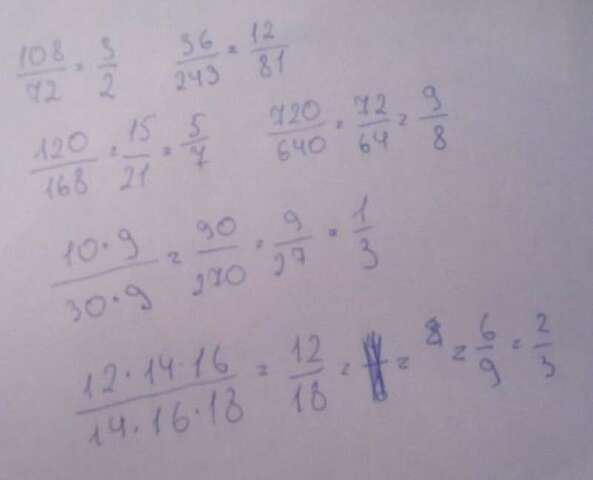 108/72 = 3/2 36/243 = 12/81
120/168 = 15/21 = 5/7 720/640 = 72/64 = 9/8
10·9/30·9 = 90/270 = 9/27 = 1/3
12·14·16/14·16·18 = 12/18 = = = 6/9 = 2/3